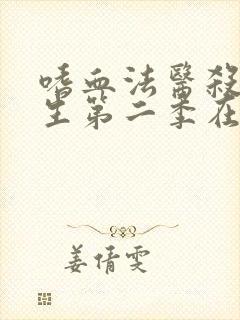 嗜血法醫殺
生第二季在
姜倩雯